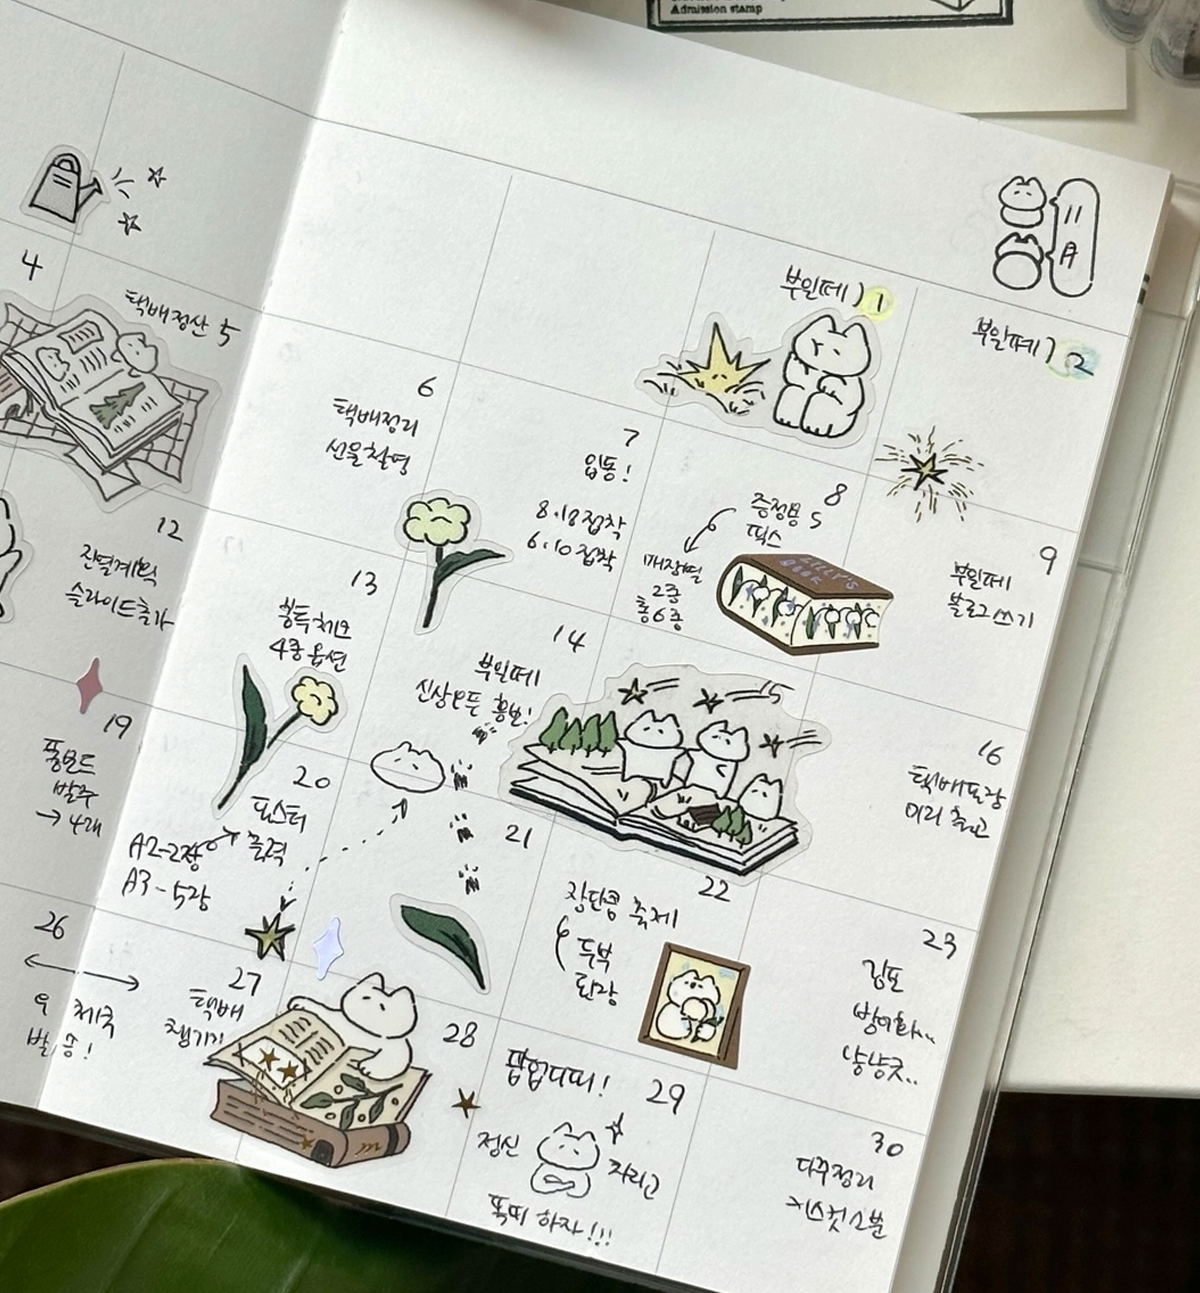 Admission stamp
11
月
부일페 1
부일페 2
4
택배정산 5
6
택배정리
선물촬영
7
입동!
8·10접착
6·10접착
8
증정용 5
떡스
매장별
2종
총6종
LILLY'S
BOOK
9
부일페
블로그쓰기
12
진열계획
슬라이드추가
13
4종 옵션
14
부일페
홍보!
15
16
택배포장
미리 출고
19
폼보드
발주
→ 4개
20
포스터
출력
A2-2장
A3-5장
21
22
장단콩 축제
두부
된장
23
김포
방어회..
냥냥굿..
26
27
택배
챙기기
28
29
팝업디피!
정신
차리고
똑띠 하자!!!
30
다꾸정리
키스컷소분